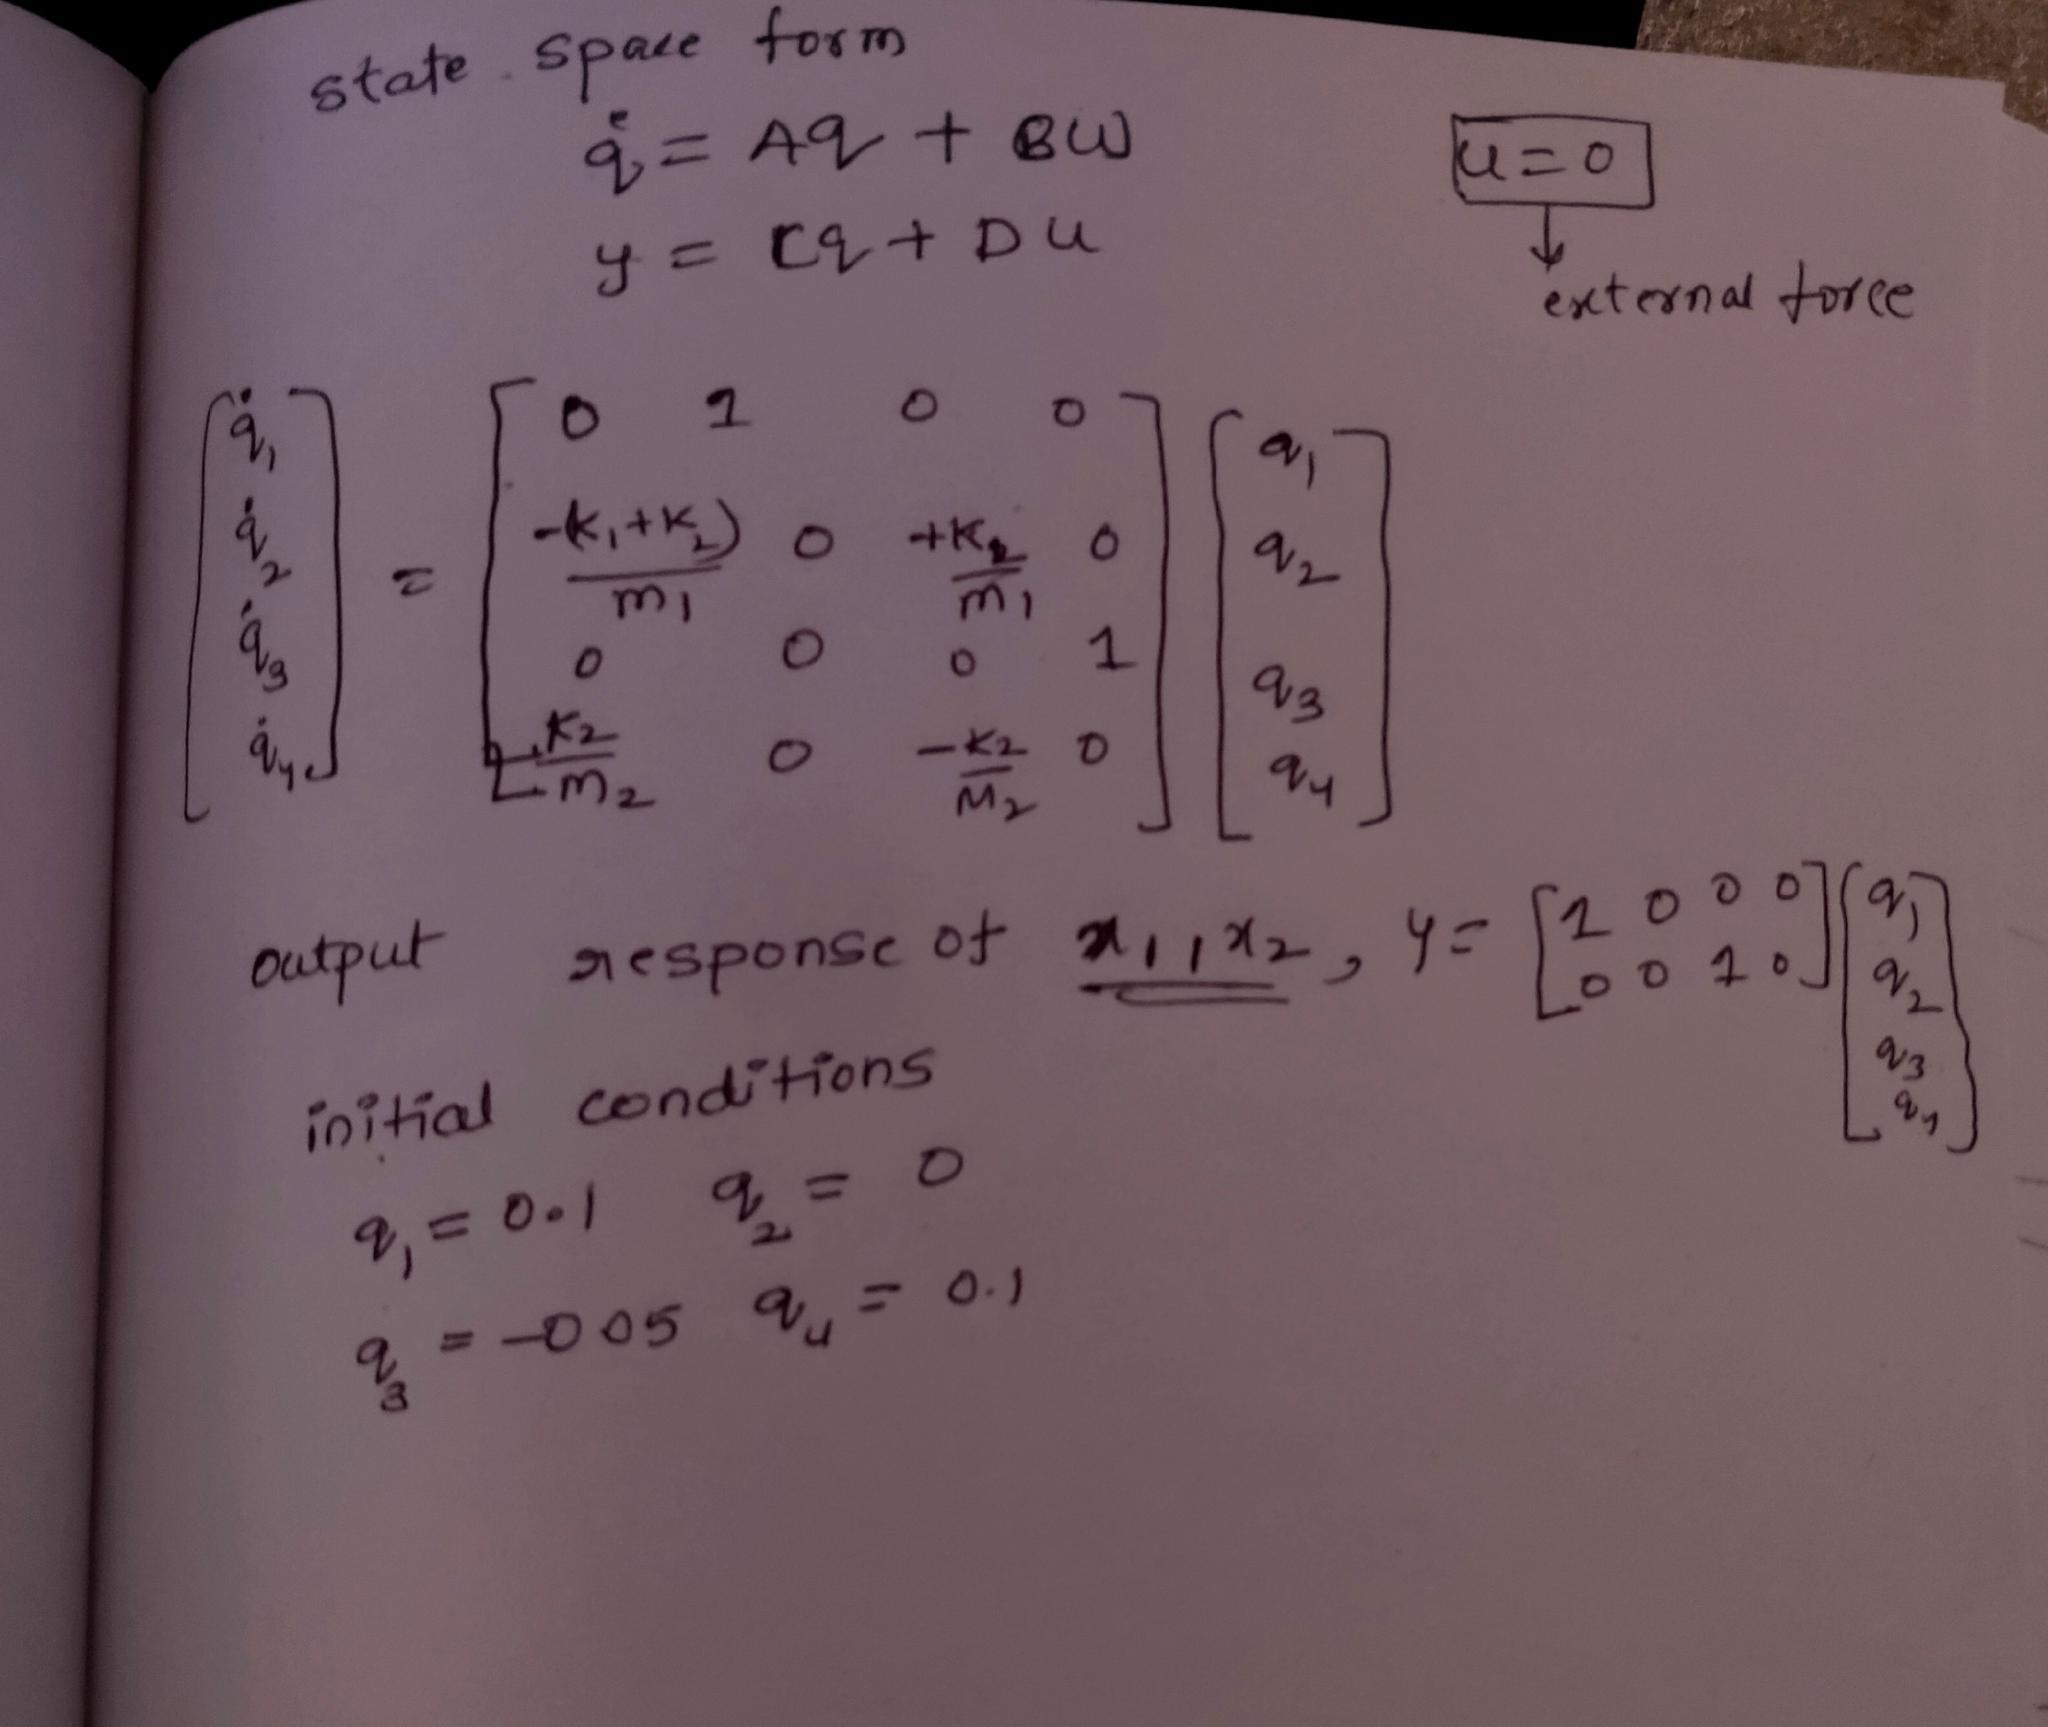 state space form
q̇ = Aq + BU
u=0
y = Cq + DU
external force
[q̇1 q̇2 q̇3 q̇4] = [0 1 0 0
-k1+k2)/m1 0 +k2/m1 0
0 0 0 1
k2/m2 0 -k2/M2 0] [q1 q2 q3 q4]
output response of x1, x2, y = [1 0 0 0
0 0 1 0] [q1 q2 q3 q4]
initial conditions
q1 = 0.1 q2 = 0
q3 = -0 05 q4 = 0.1